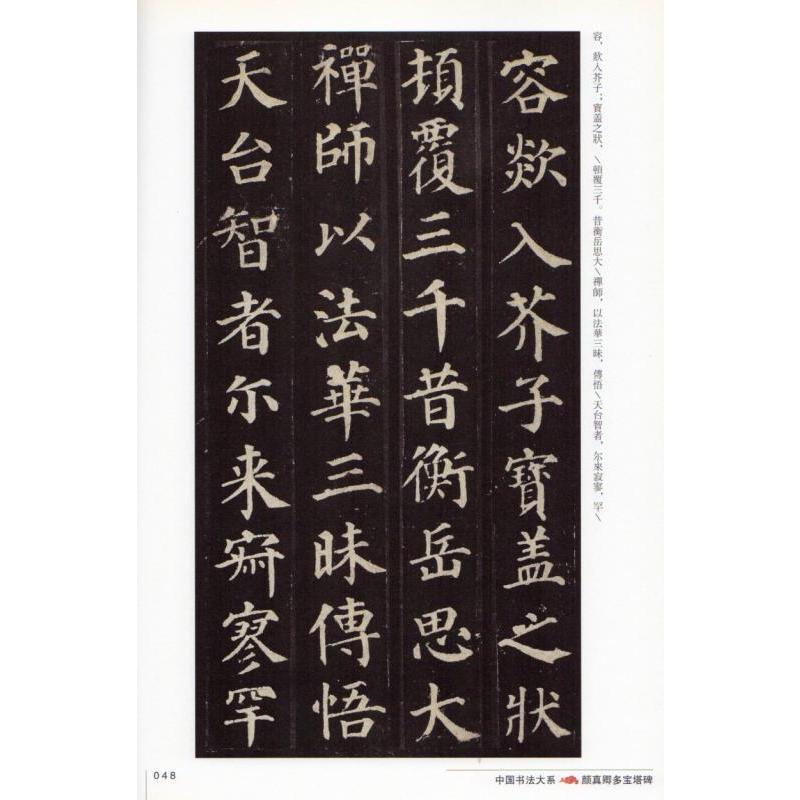 容欻入芥子寶盖之狀
頓覆三千昔衡岳思大
禪師以法華三昧傳悟
天台智者尒来寂寥罕
容，欻入芥子；寶盖之狀，\頓覆三千。昔衡岳思大\禪師，以法華三昧，傳悟\天台智者，尔來寂寥，罕\
048
中国书法大系 颜真卿多宝塔碑